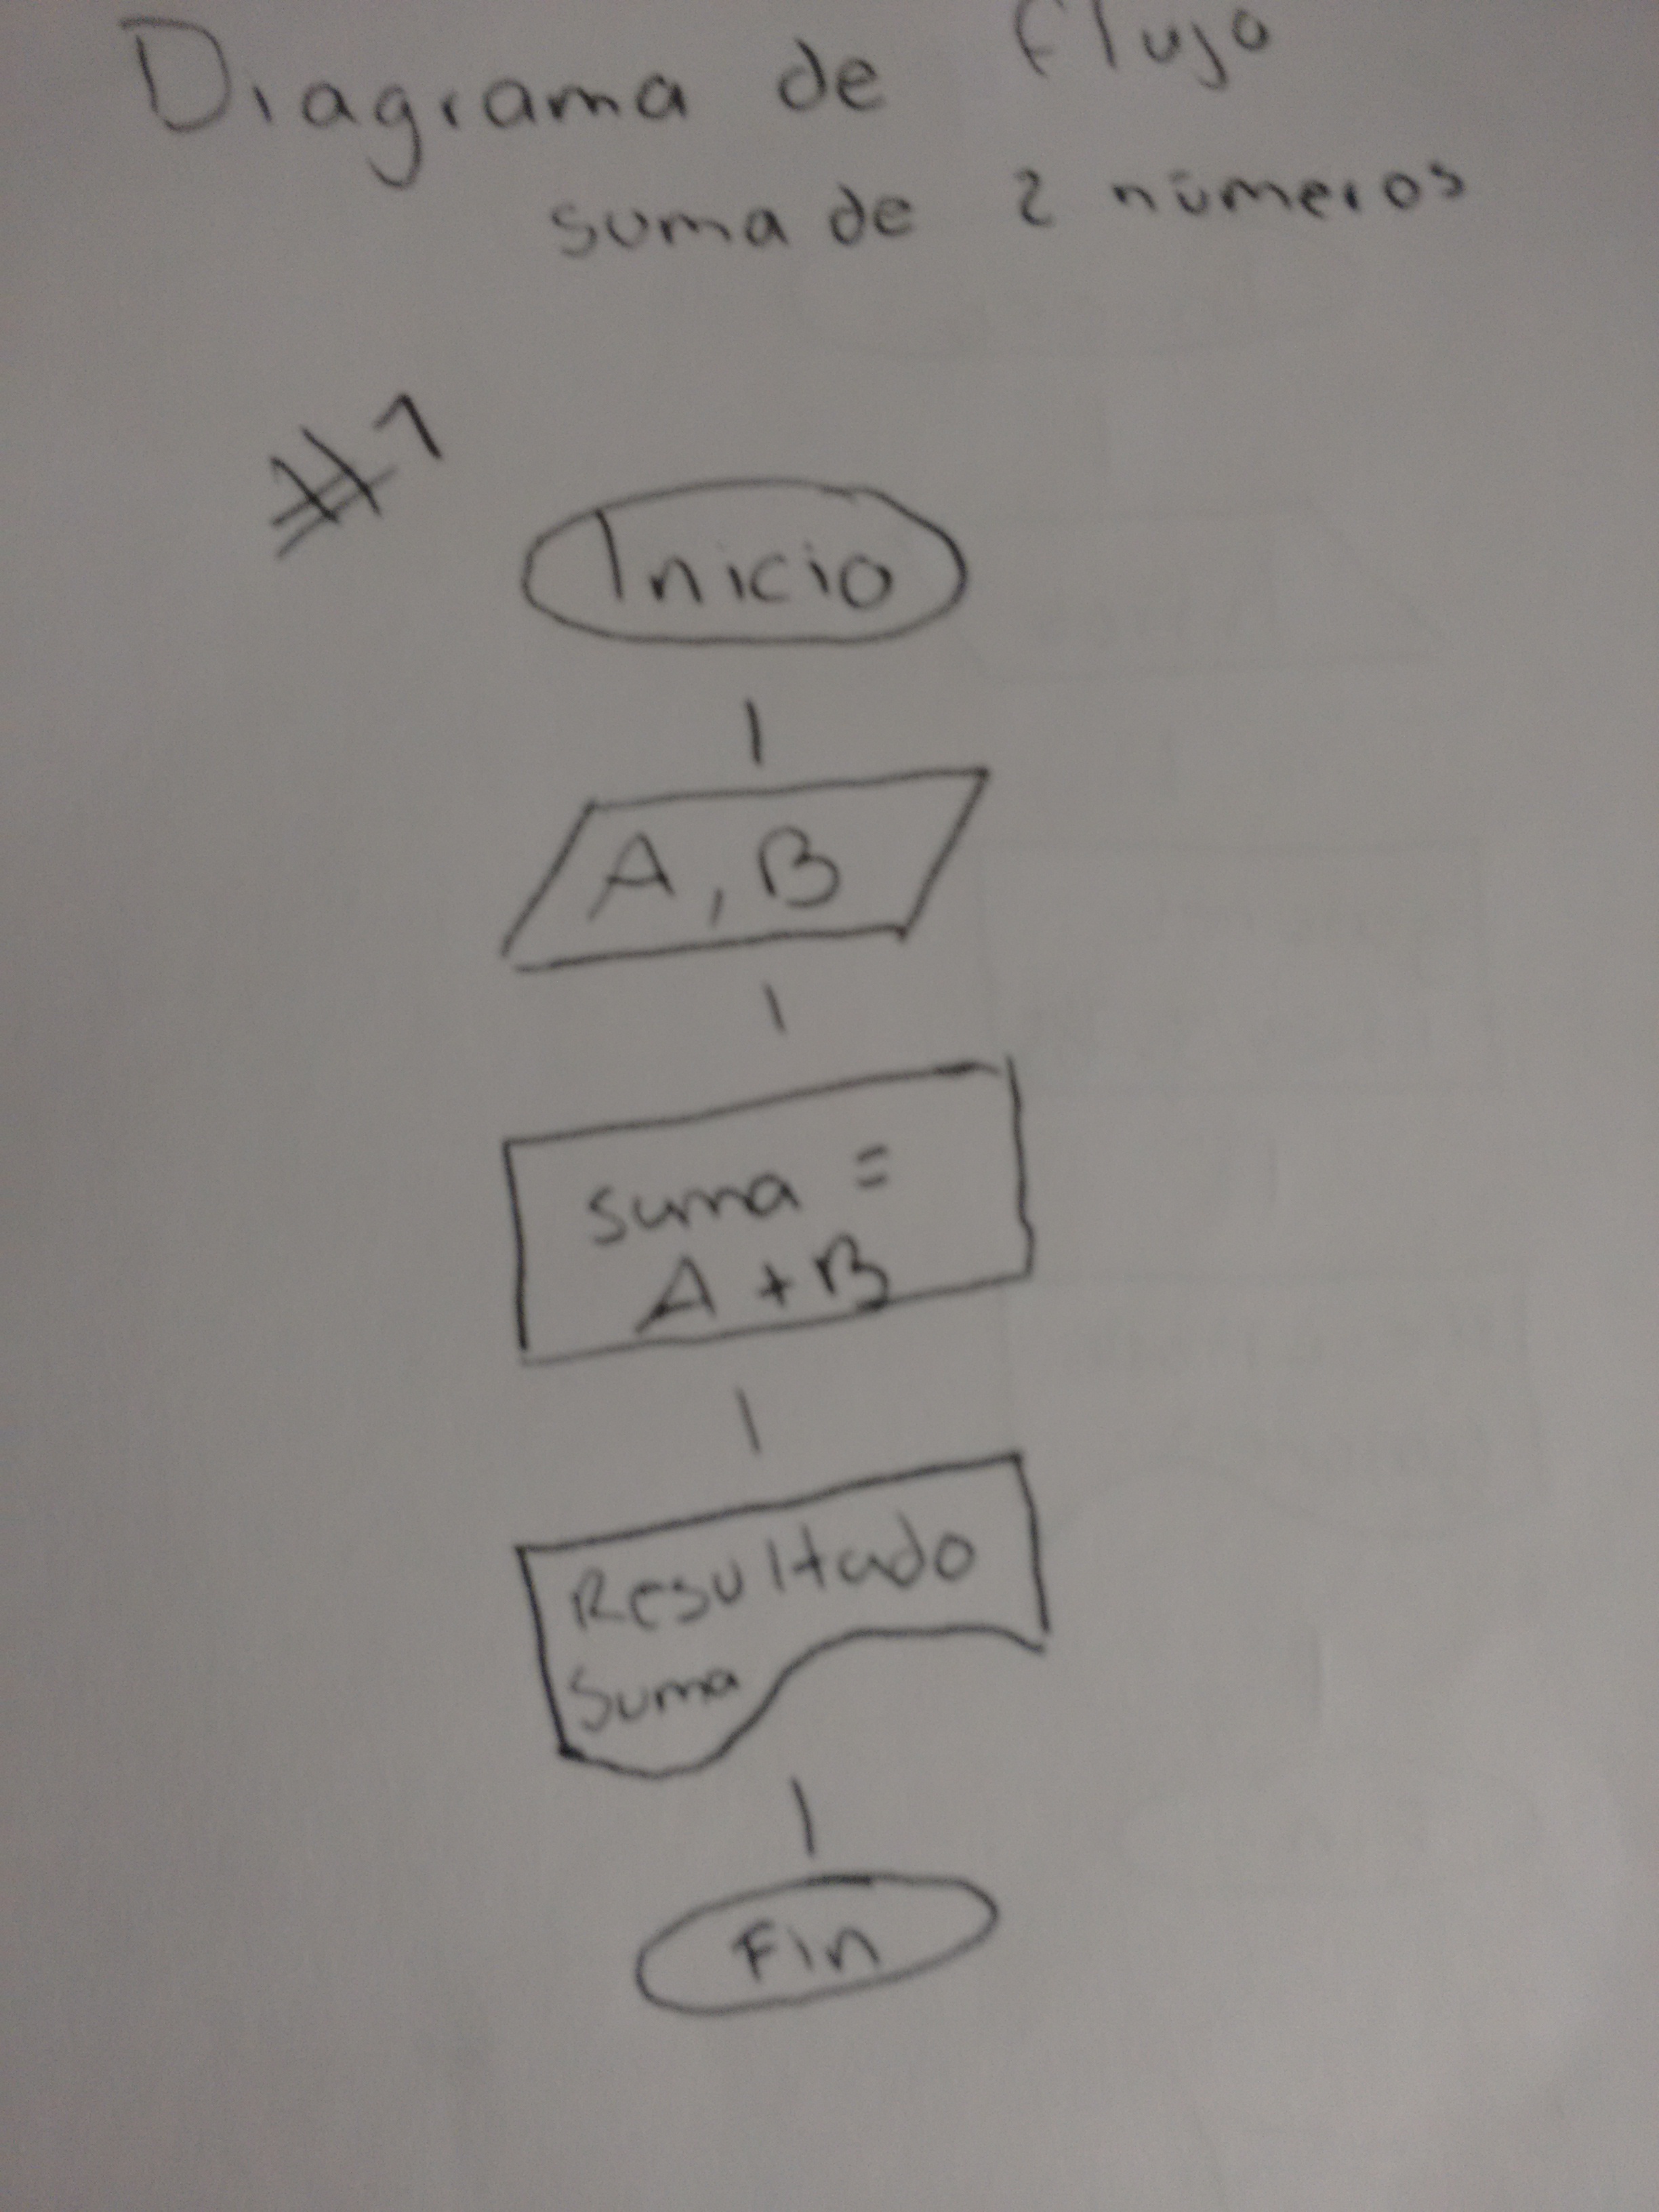 Diagrama de flujo
suma de 2 números
#1
Inicio
A, B
suma =
A + B
Resultado
Suma
Fin